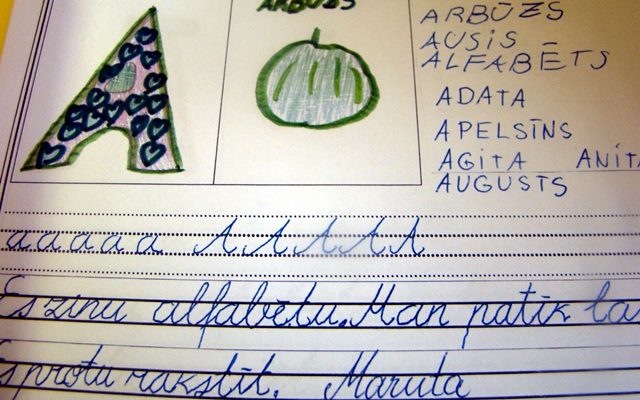 ARBŪZS
ARBŪZS
AUSIS
ALFABĒTS
ADATA
APELSĪNS
AGITA ANITA
AUGUSTS
a a a a a A A A A A
Es zinu alfabētu. Man patīk la
Es protu rakstīt. Maruta